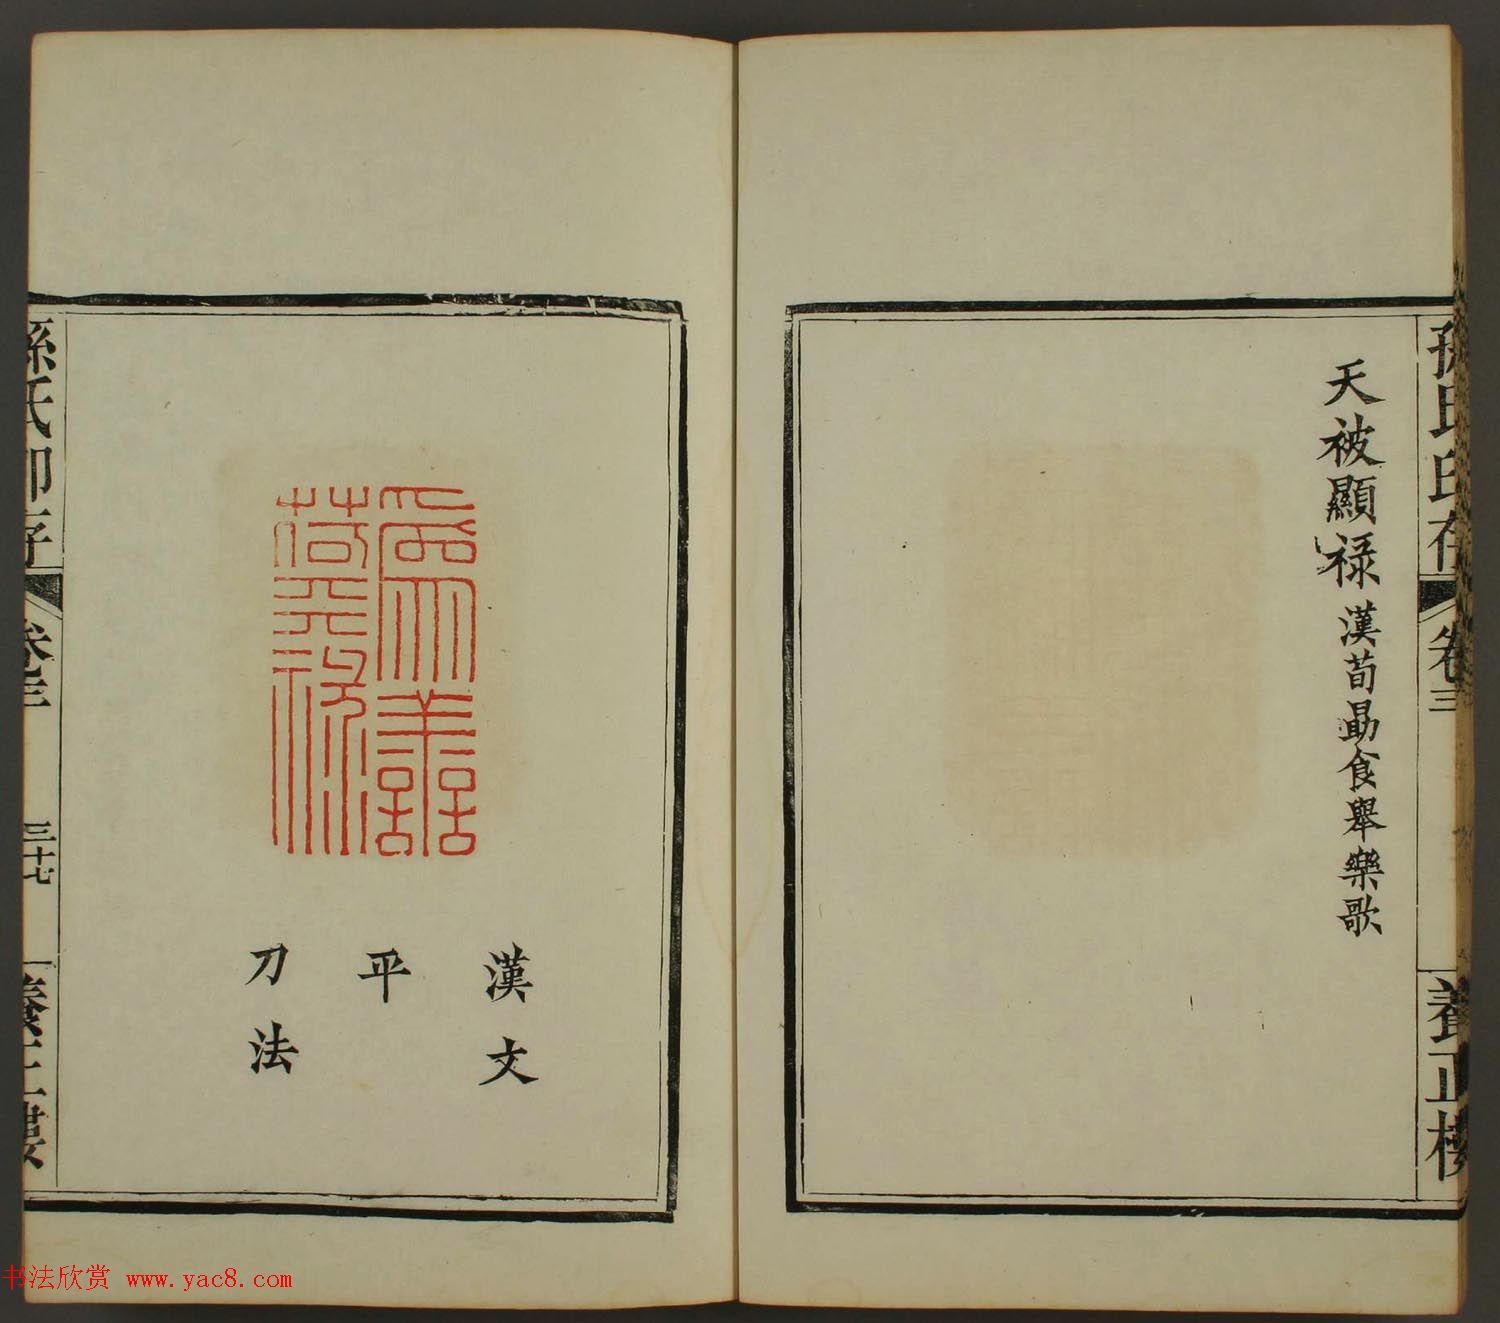 孫氏印存
卷三
養正樓
天被顯祿 漢荀勗食舉樂歌
爲善
荷天祿
漢文
平
刀法
孫氏印存
卷三
三十七
養正樓
书法欣赏 www.yac8.com